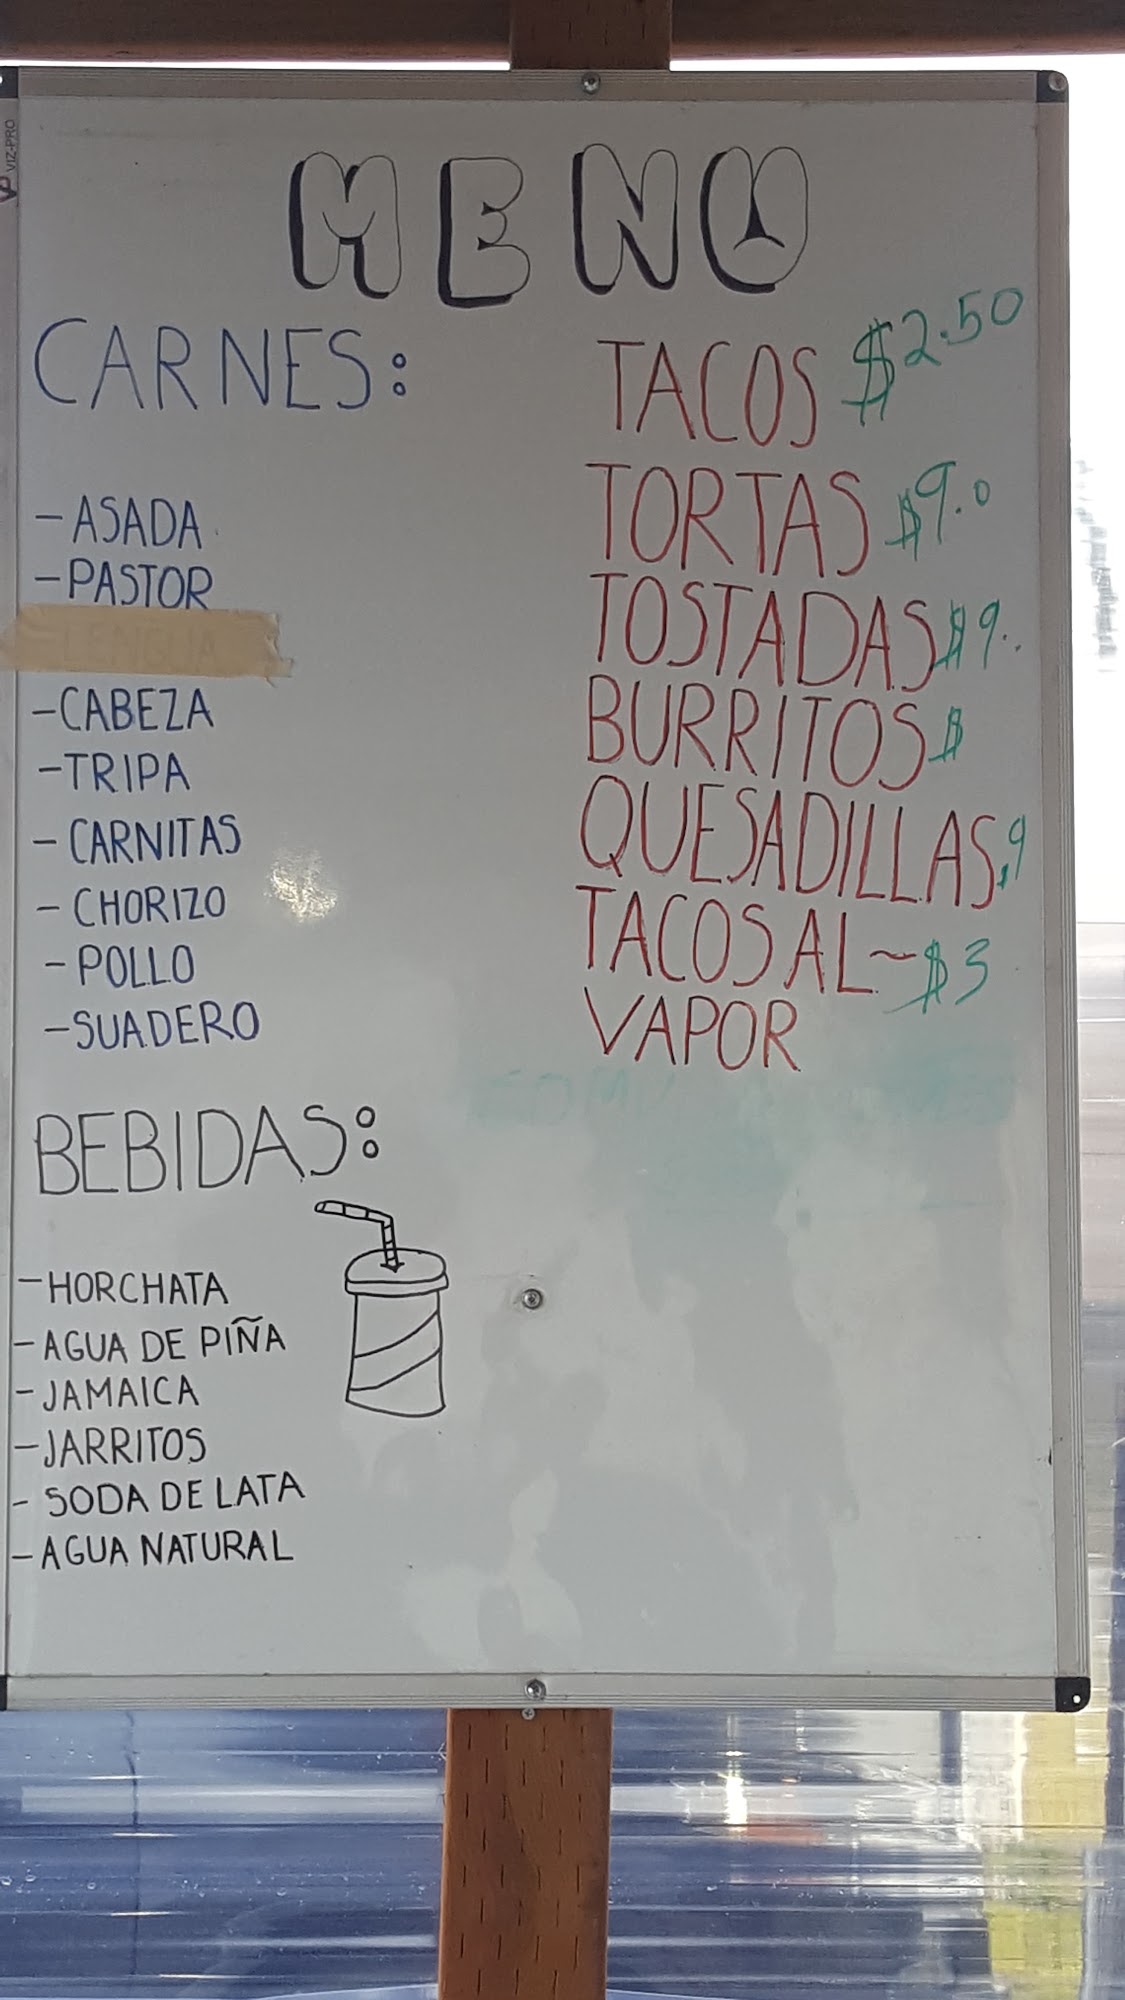 VIZ-PRO
MENU
CARNES:
- ASADA
- PASTOR
- LENGUA
- CABEZA
- TRIPA
- CARNITAS
- CHORIZO
- POLLO
- SUADERO
BEBIDAS:
- HORCHATA
- AGUA DE PIÑA
- JAMAICA
- JARRITOS
- SODA DE LATA
- AGUA NATURAL
TACOS $2.50
TORTAS $9.0
TOSTADAS $9.
BURRITOS $
QUESADILLAS 9
TACOS AL ~ $3
VAPOR